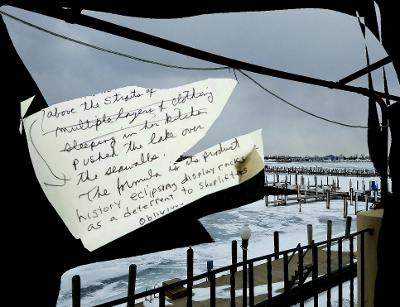 (above the Straits of
multiple layers of clothing
sleeping in her kitchen
pushed the lake over
the seawalls...
The formula is its product
history eclipsing display racks
as a deterrent to shoplifters
oblivion...